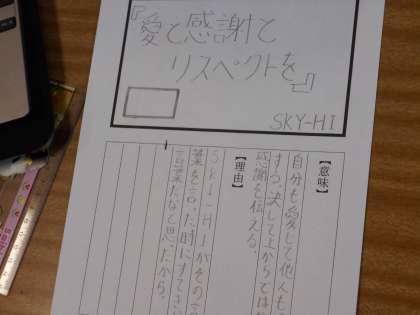 『愛と感謝と
リスペクトを』
SKY-HI
【意味】
自分も愛して他人も
すつ、決して上からでは
感謝を伝える。
【理由】
SKY-HIがその言
葉を言った時にすてき
言葉だなと思ったから。